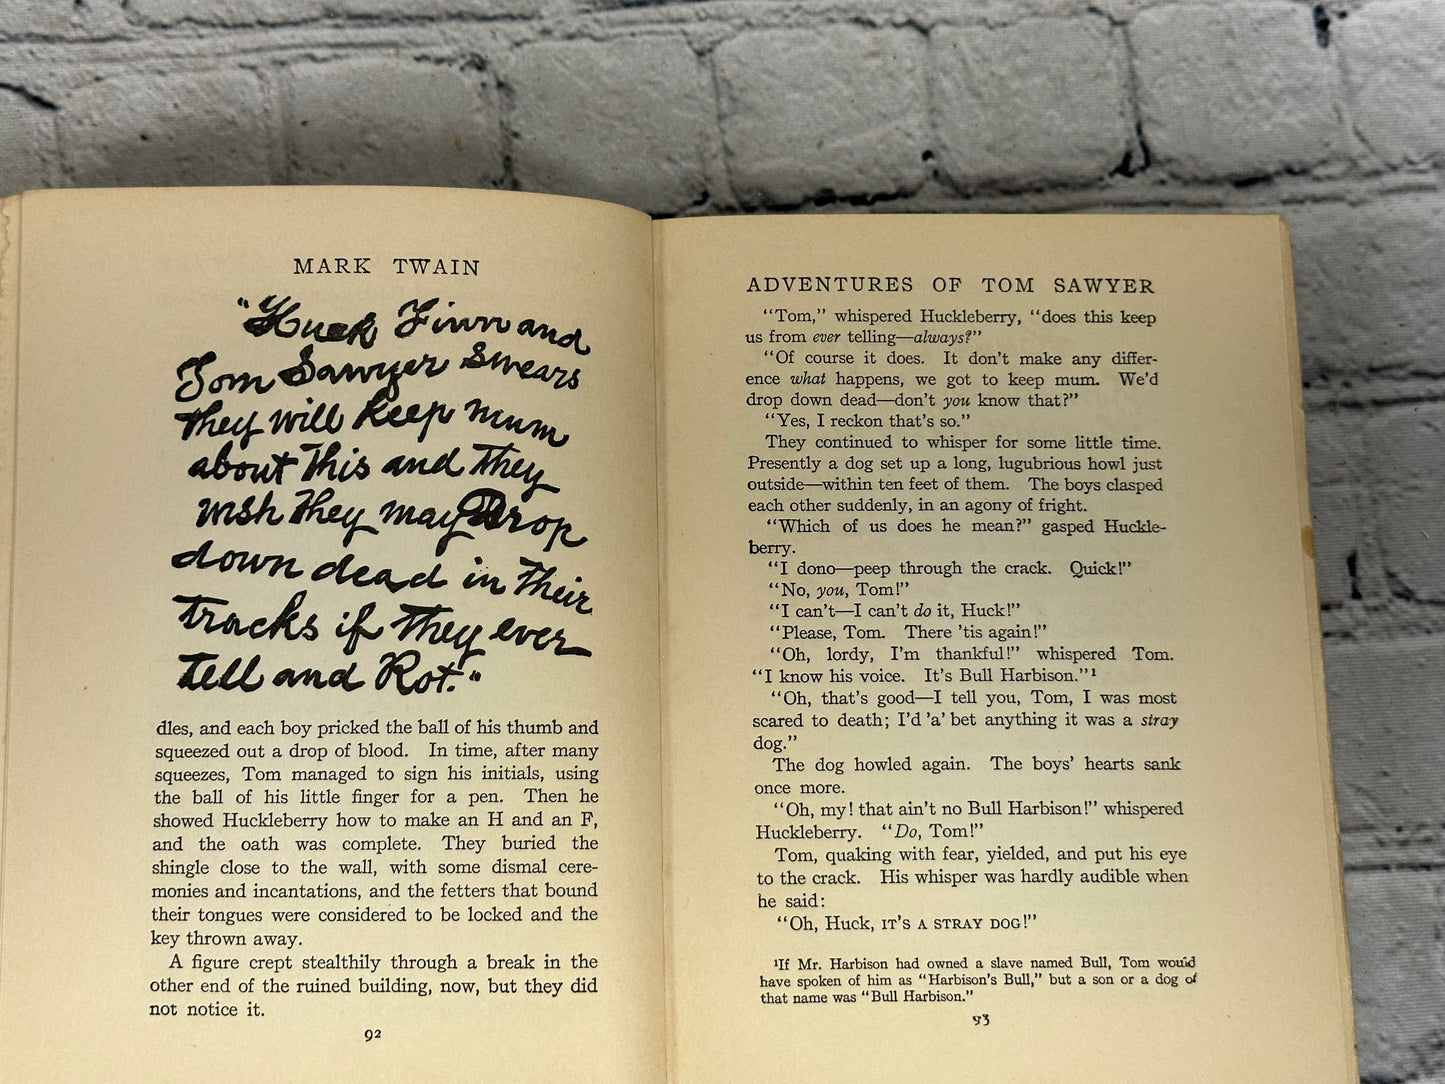 MARK TWAIN
"Huck Finn and
Tom Sawyer swears
they will keep mum
about this and they
wish they may Drop
down dead in Their
tracks if they ever
tell and Rot."
dles, and each boy pricked the ball of his thumb and
squeezed out a drop of blood. In time, after many
squeezes, Tom managed to sign his initials, using
the ball of his little finger for a pen. Then he
showed Huckleberry how to make an H and an F,
and the oath was complete. They buried the
shingle close to the wall, with some dismal cere-
monies and incantations, and the fetters that bound
their tongues were considered to be locked and the
key thrown away.
A figure crept stealthily through a break in the
other end of the ruined building, now, but they did
not notice it.
92
ADVENTURES OF TOM SAWYER
"Tom," whispered Huckleberry, "does this keep
us from ever telling—always?"
"Of course it does. It don't make any differ-
ence what happens, we got to keep mum. We'd
drop down dead—don't you know that?"
"Yes, I reckon that's so."
They continued to whisper for some little time.
Presently a dog set up a long, lugubrious howl just
outside—within ten feet of them. The boys clasped
each other suddenly, in an agony of fright.
"Which of us does he mean?" gasped Huckle-
berry.
"I dono—peep through the crack. Quick!"
"No, you, Tom!"
"I can't—I can't do it, Huck!"
"Please, Tom. There 'tis again!"
"Oh, lordy, I'm thankful!" whispered Tom.
"I know his voice. It's Bull Harbison."¹
"Oh, that's good—I tell you, Tom, I was most
scared to death; I'd 'a' bet anything it was a stray
dog."
The dog howled again. The boys' hearts sank
once more.
"Oh, my! that ain't no Bull Harbison!" whispered
Huckleberry. "Do, Tom!"
Tom, quaking with fear, yielded, and put his eye
to the crack. His whisper was hardly audible when
he said:
"Oh, Huck, IT'S A STRAY DOG!"
¹If Mr. Harbison had owned a slave named Bull, Tom would
have spoken of him as "Harbison's Bull," but a son or a dog of
that name was "Bull Harbison."
93